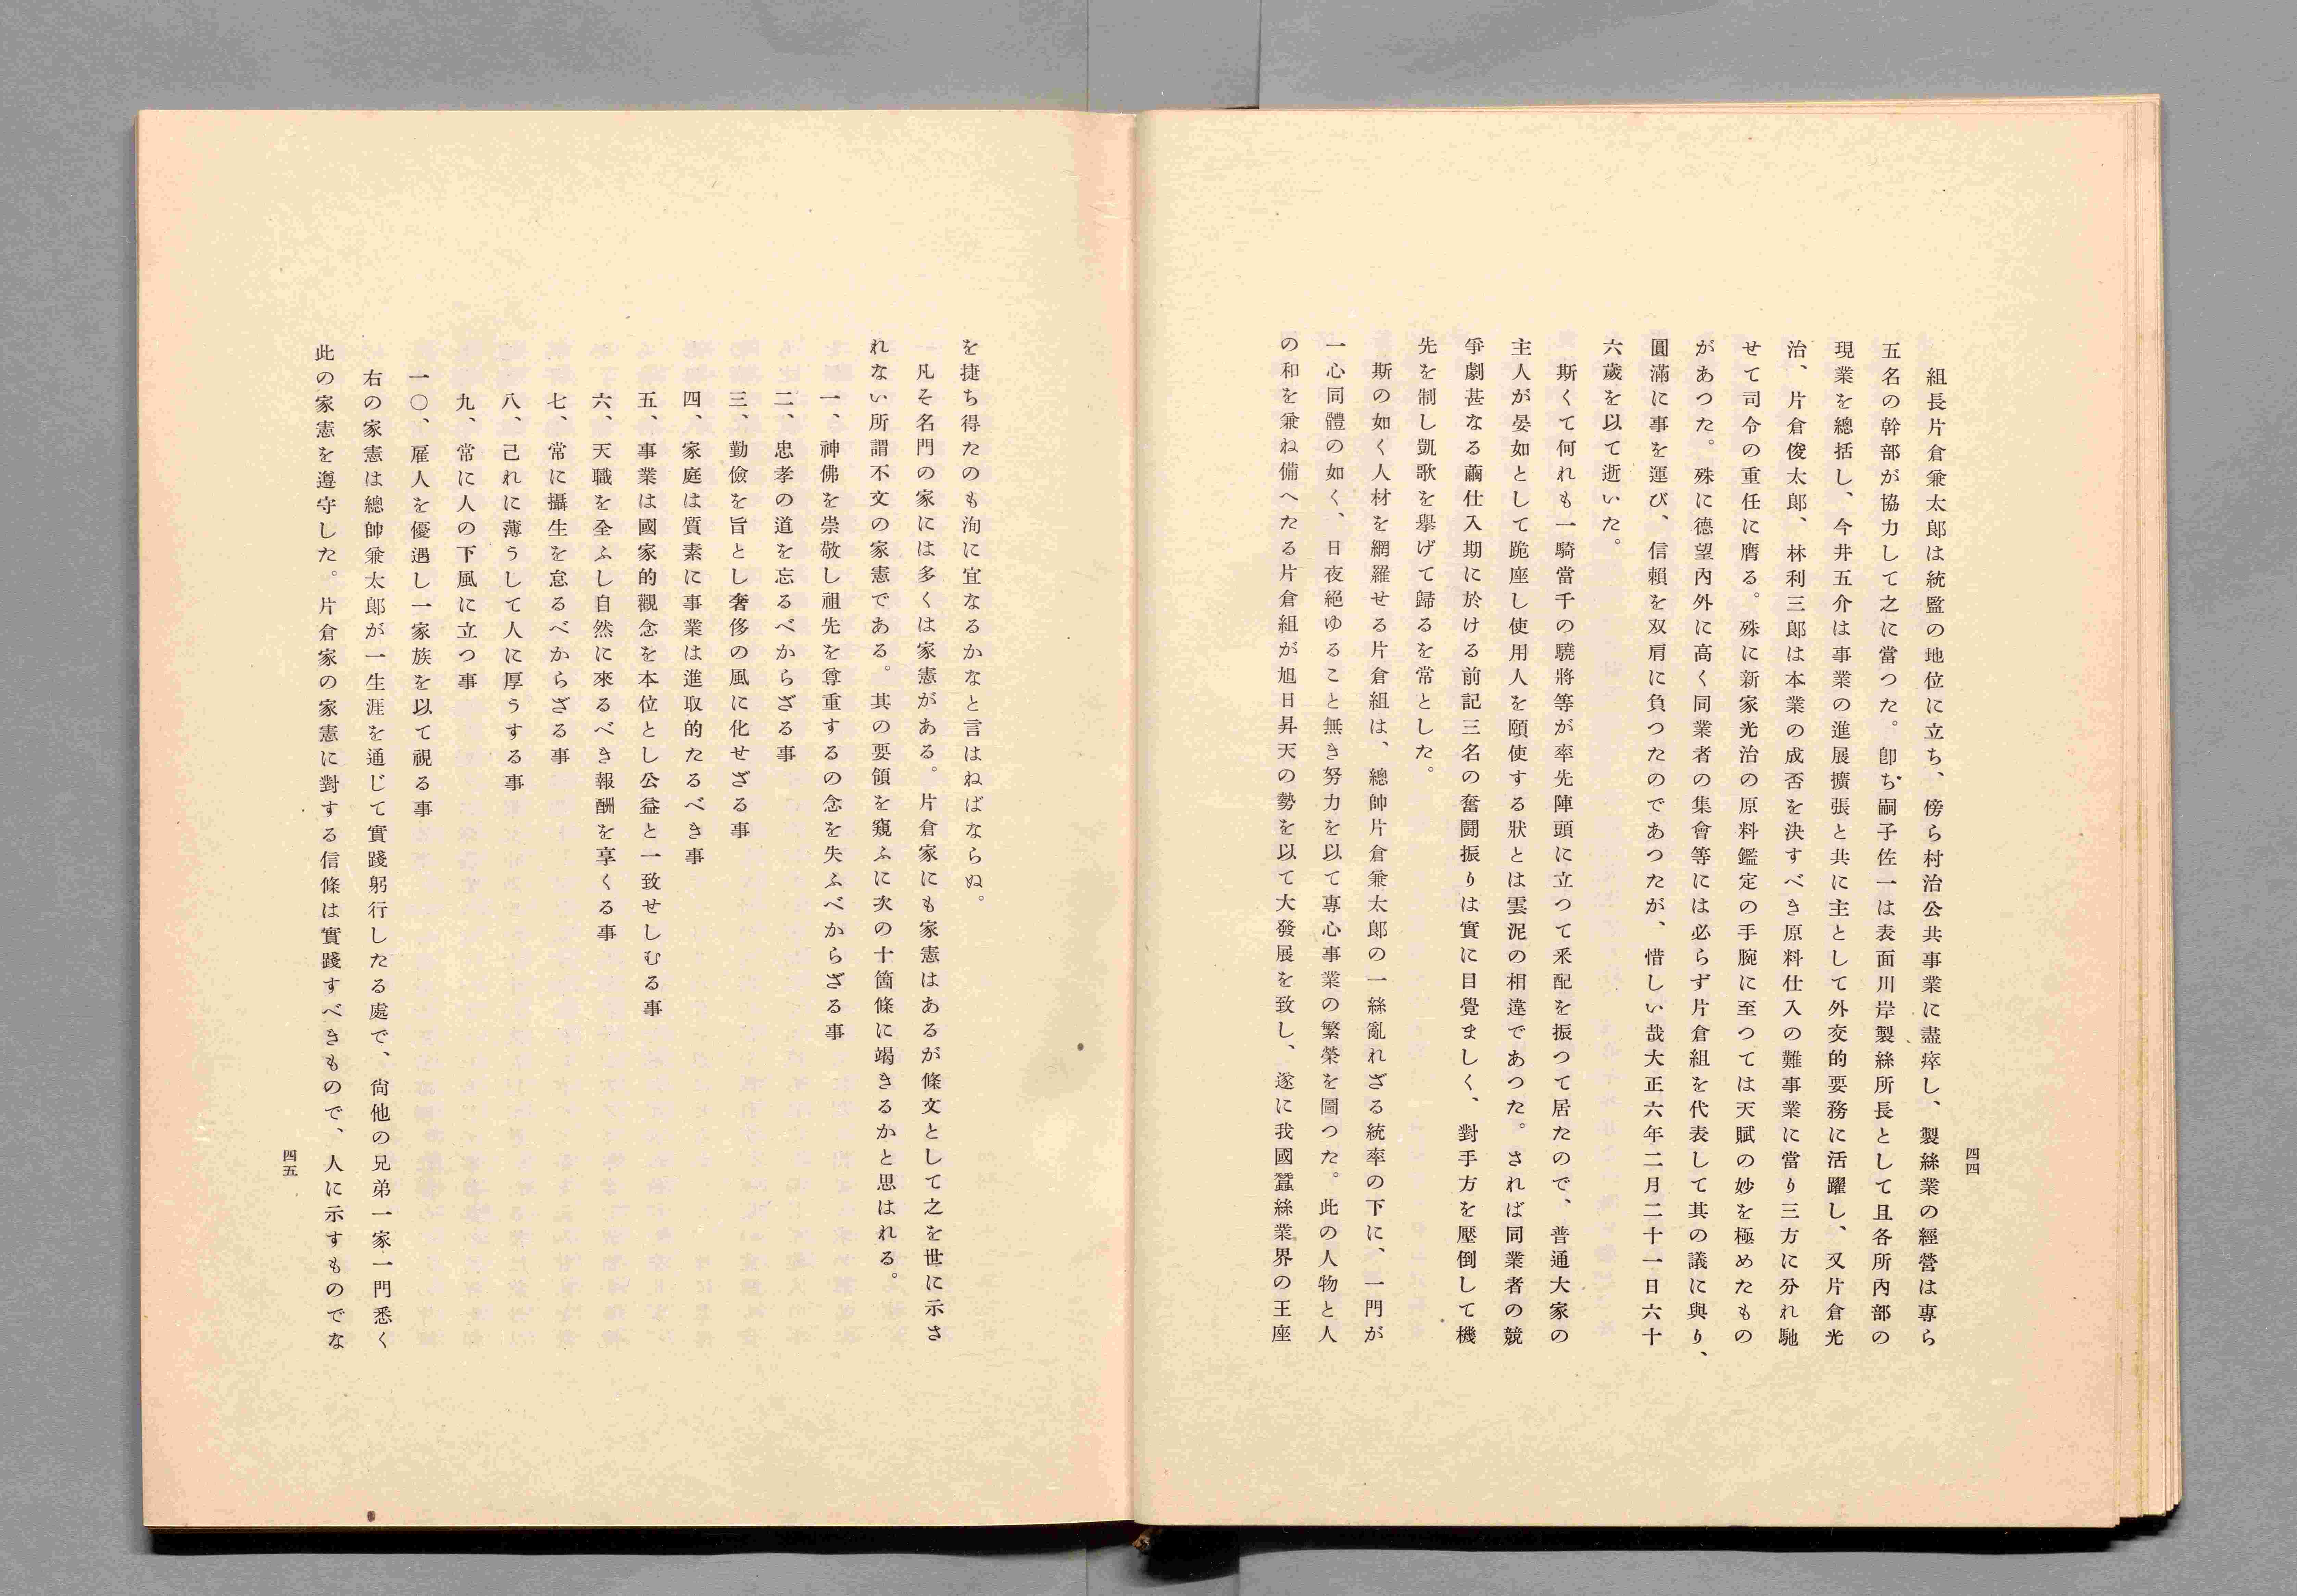 組長片倉兼太郎は統監の地位に立ち、傍ら村治公共事業に盡瘁し、製絲業の經營は專ら
五名の幹部が協力して之に當つた。卽ち嗣子佐一は表面川岸製絲所長として且各所內部の
現業を總括し、今井五介は事業の進展擴張と共に主として外交的要務に活躍し、又片倉光
治、片倉俊太郎、林利三郎は本業の成否を決すべき原料仕入の難事業に當り三方に分れ馳
せて司令の重任に膺る。殊に新家光治の原料鑑定の手腕に至つては天賦の妙を極めたもの
があつた。殊に德望內外に高く同業者の集會等には必らず片倉組を代表して其の議に與り、
圓滿に事を運び、信賴を双肩に負つたのであつたが、惜しい哉大正六年二月二十一日六十
六歲を以て逝いた。
斯くて何れも一騎當千の驍將等が率先陣頭に立つて釆配を振つて居たので、普通大家の
主人が晏如として跪座し使用人を頤使する狀とは雲泥の相違であつた。されば同業者の競
爭劇甚なる繭仕入期に於ける前記三名の奮鬪振りは實に目覺ましく、對手方を壓倒して機
先を制し凱歌を擧げて歸るを常とした。
斯の如く人材を網羅せる片倉組は、總帥片倉兼太郎の一絲亂れざる統率の下に、一門が
一心同體の如く、日夜絕ゆること無き努力を以て專心事業の繁榮を圖つた。此の人物と人
の和を兼ね備へたる片倉組が旭日昇天の勢を以て大發展を致し、遂に我國蠶絲業界の王座
四四
を捷ち得たのも洵に宜なるかなと言はねばならぬ。
凡そ名門の家には多くは家憲がある。片倉家にも家憲はあるが條文として之を世に示さ
れない所謂不文の家憲である。其の要領を窺ふに次の十箇條に竭きるかと思はれる。
一、神佛を崇敬し祖先を尊重するの念を失ふべからざる事
二、忠孝の道を忘るべからざる事
三、勤儉を旨とし奢侈の風に化せざる事
四、家庭は質素に事業は進取的たるべき事
五、事業は國家的觀念を本位とし公益と一致せしむる事
六、天職を全ふし自然に來るべき報酬を享くる事
七、常に攝生を怠るべからざる事
八、己れに薄うして人に厚うする事
九、常に人の下風に立つ事
一〇、雇人を優遇し一家族を以て視る事
右の家憲は總帥兼太郎が一生涯を通じて實踐躬行したる處で、尙他の兄弟一家一門悉く
此の家憲を遵守した。片倉家の家憲に對する信條は實踐すべきもので、人に示すものでな
四五